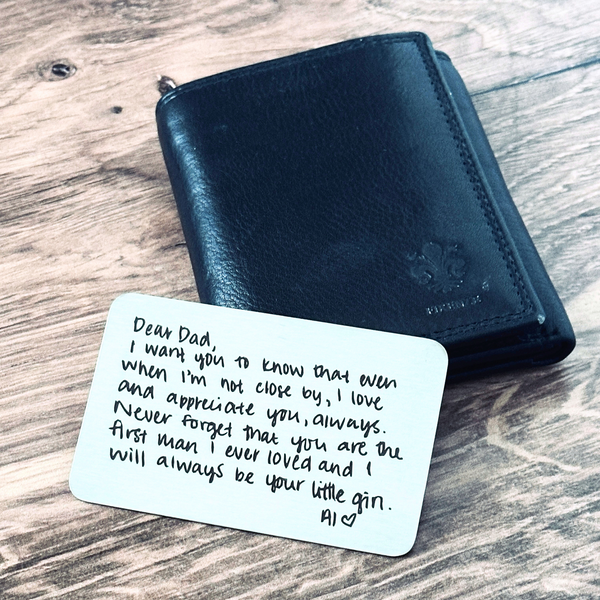 Dear Dad,
I want you to know that even
when I'm not close by, I love
and appreciate you, always.
Never forget that you are the
first man I ever loved and I
will always be your little girl.
Al ♡